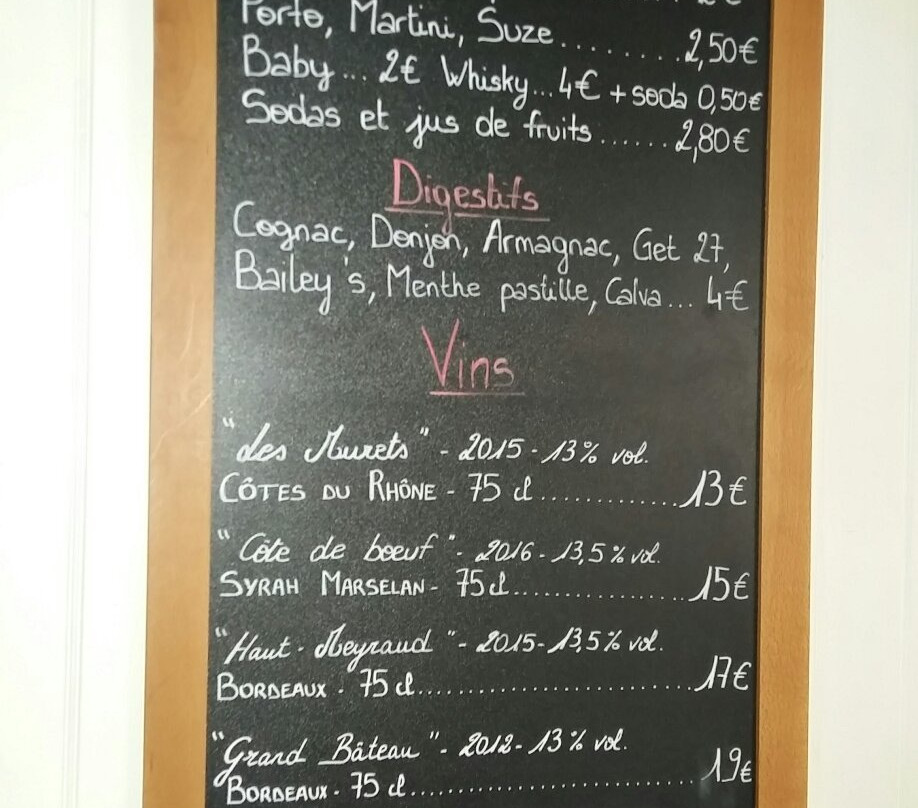 Porto, Martini, Suze.........2,50€
Baby... 2€ Whisky...4€ + soda 0,50€
Sodas et jus de fruits......2,80€
Digestifs
Cognac, Donjon, Armagnac, Get 27,
Bailey's, Menthe pastille, Calva... 4€
Vins
"Les Murets" - 2015 - 13% vol.
CÔTES DU RHÔNE - 75 cl..............13€
"Côte de boeuf" - 2016 - 13,5% vol.
SYRAH MARSELAN - 75 cl.................15€
"Haut-Meyraud" - 2015 - 13,5% vol.
BORDEAUX - 75 cl..........................17€
"Grand Bâteau" - 2012 - 13% vol.
BORDEAUX - 75 cl..........................19€